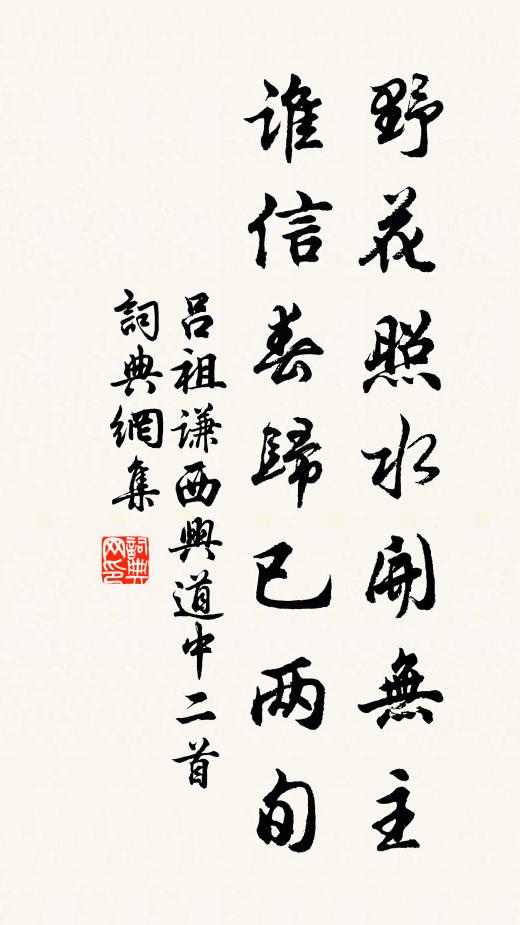 野花照水開無主
誰信春歸已兩旬
呂祖謙西興道中二首
詞典網集
詞典
网印